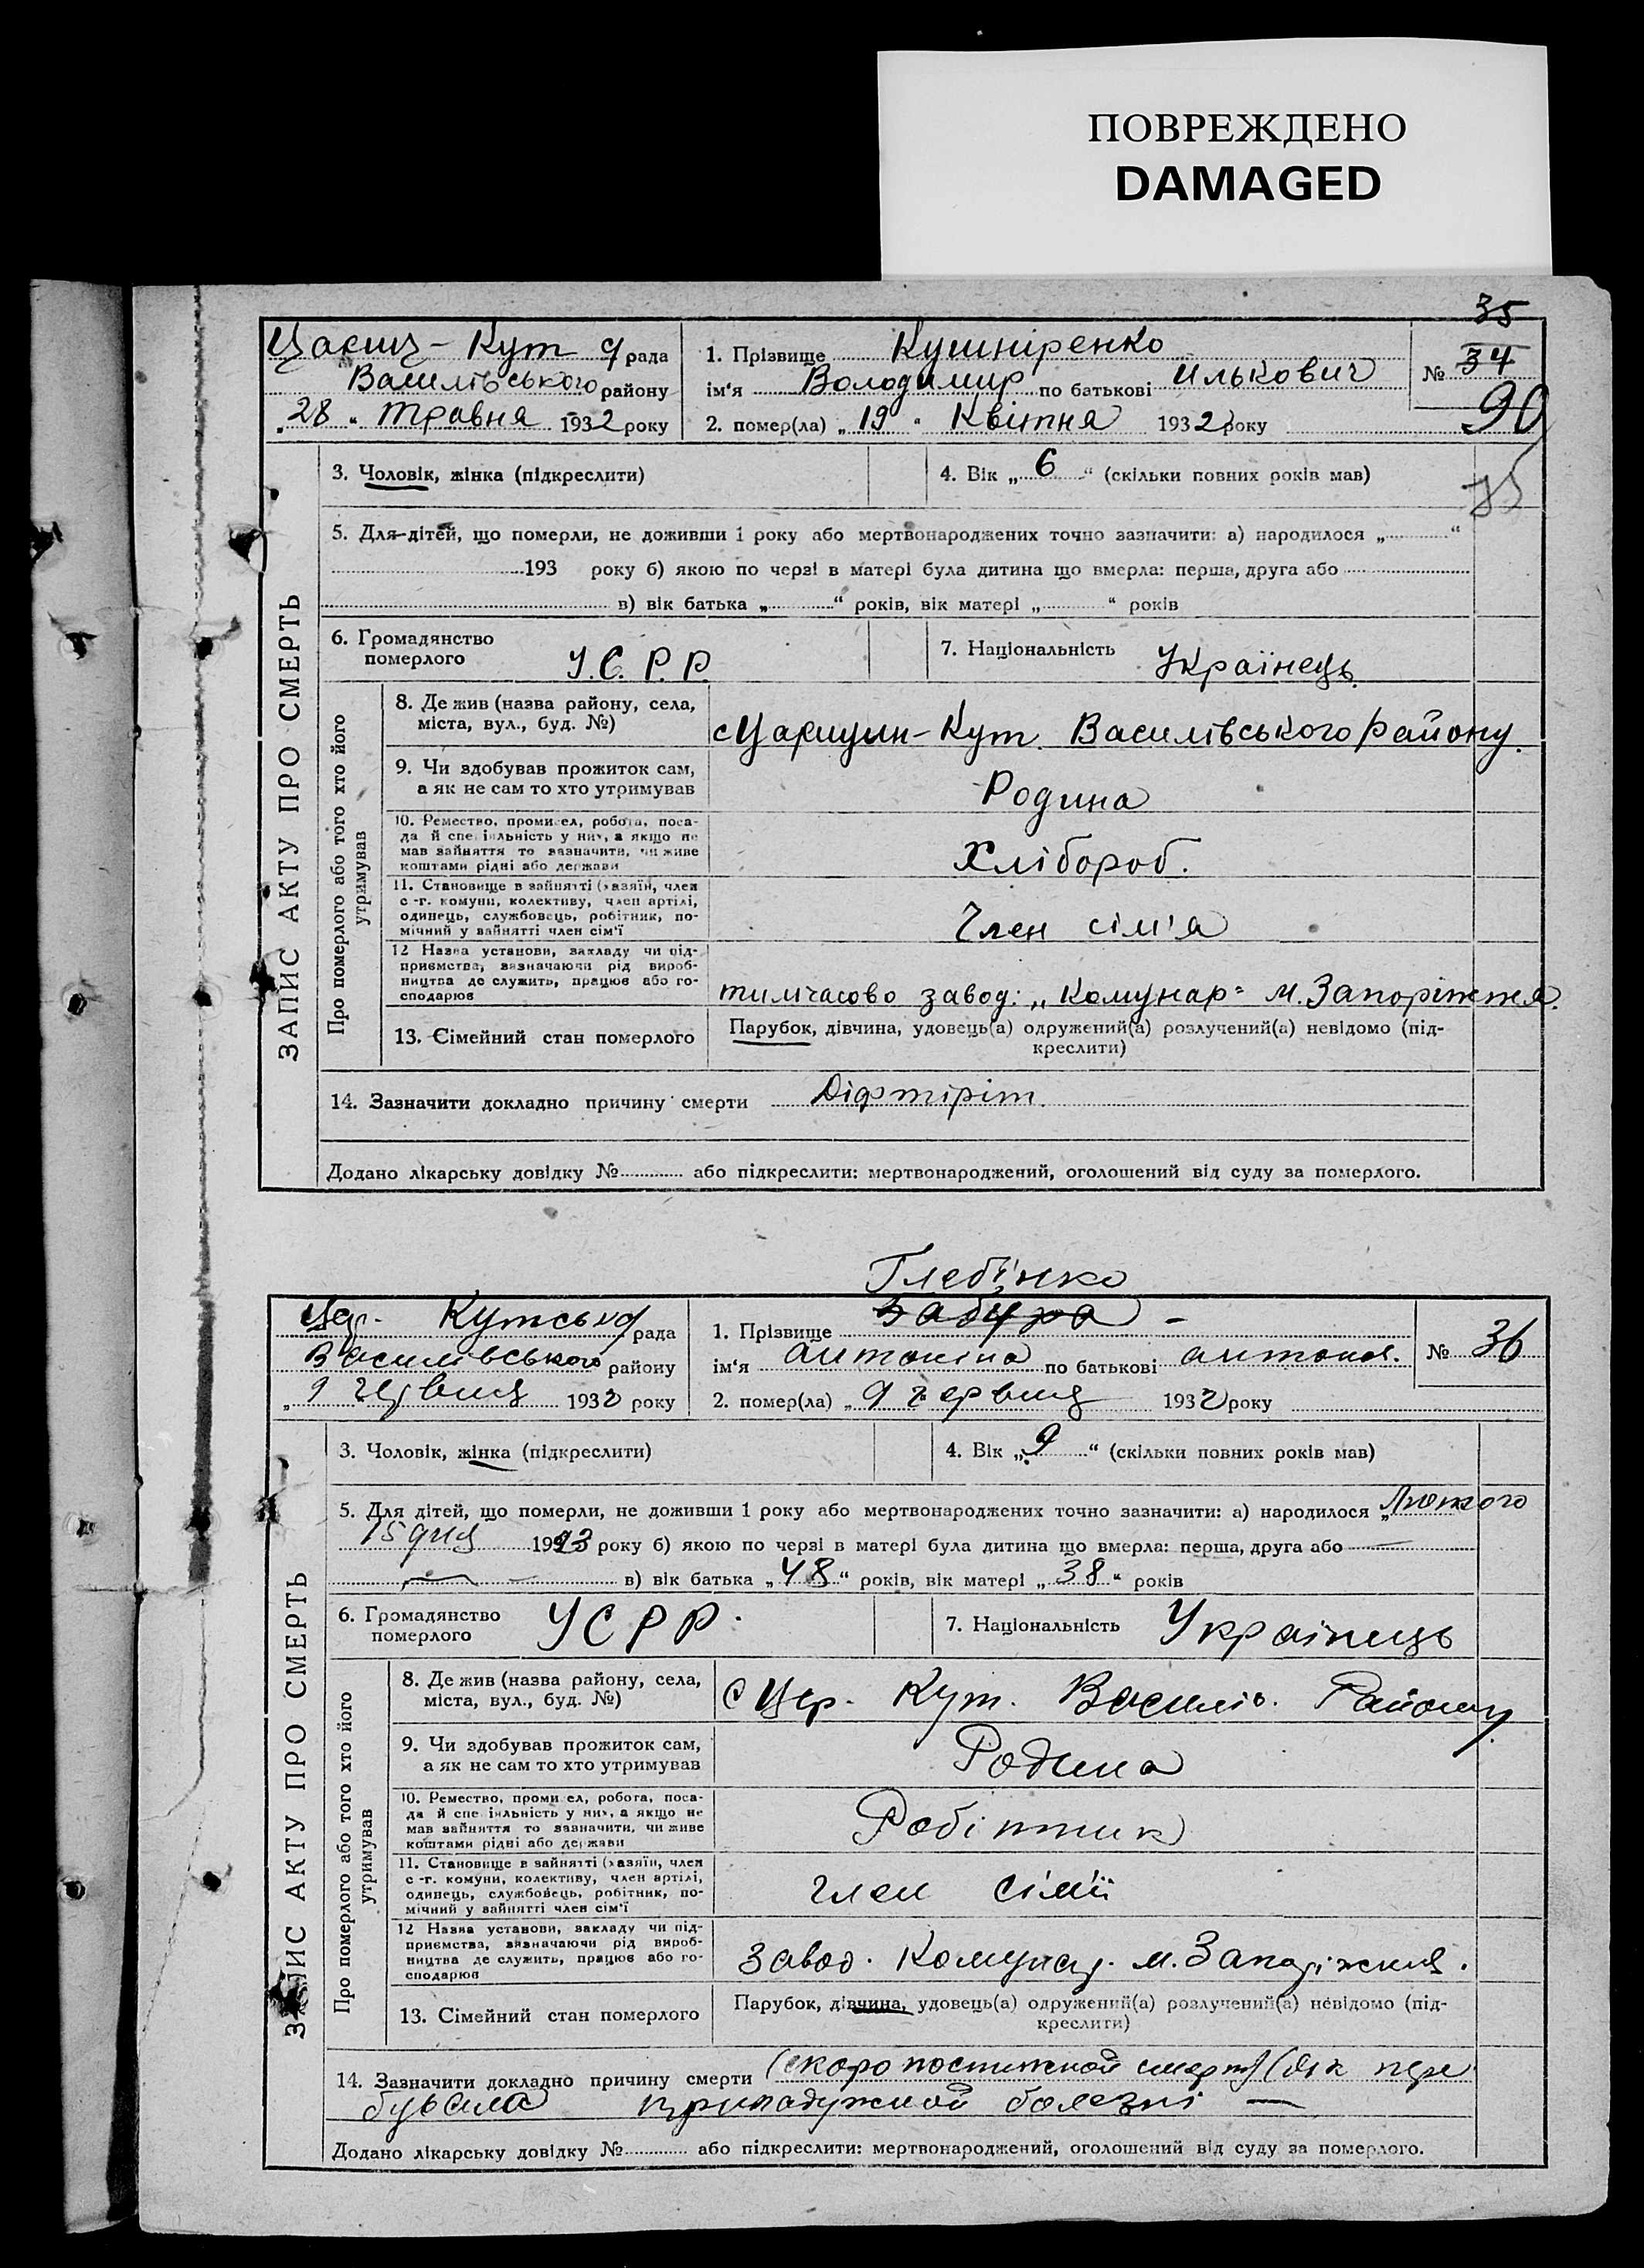 ПОВРЕЖДЕНО
DAMAGED
35
Кут рада
Василівського району
„28“ Травня 1932 року
1. Прізвище Кушніренко
ім‘я Володимир по батькові Илькович
2. помер(ла) „19“ Квітня 1932 року
№ 34
90
35
ЗАПИС АКТУ ПРО СМЕРТЬ
3. Чоловік, жінка (підкреслити)
4. Вік „6“ (скільки повних років мав)
5. Для дітей, що померли, не доживши 1 року або мертвонароджених точно зазначити: а) народилося „ “
193 року б) якою по черзі в матері була дитина що вмерла: перша, друга або
в) вік батька „ “ років, вік матері „ “ років
6. Громадянство
померлого
У.С.Р.Р.
7. Національність Українець.
Про померлого або того хто його
утримував
8. Де жив (назва району, села,
міста, вул., буд. №)
с Царицин-Кут. Василівського району.
9. Чи здобував прожиток сам,
а як не сам то хто утримував
Родина
10. Ремество, промисел, робота, поса-
да й спеціяльність у них, а якщо не
мав зайняття то зазначити, чи живе
коштами рідні або держави
Хлібороб.
11. Становище в зайнятті (хазяїн, член
с.-г. комуни, колективу, член артілі,
одинець, службовець, робітник, по-
мічний у зайнятті член сім'ї
Член сім'я
12 Назва установи, закладу чи під-
приємства, зазначаючи рід вироб-
ництва де служить, працює або го-
сподарює
тимчасово завод: „Комунар“ м. Запоріжжя.
13. Сімейний стан померлого
Парубок, дівчина, удовець(а) одружений(а) розлучений(а) невідомо (під-
креслити)
14. Зазначити докладно причину смерти Діфтіріт.
Додано лікарську довідку № або підкреслити: мертвонароджений, оголошений від суду за померлого.
Глебінко
Цар. Кутська рада
Василівського району
„9 червня 1932 року
1. Прізвище
ім‘я Антоніна по батькові Антонов.
2. помер(ла) „9 червня 1932 року
№ 36
ЗАПИС АКТУ ПРО СМЕРТЬ
3. Чоловік, жінка (підкреслити)
4. Вік „9“ (скільки повних років мав)
5. Для дітей, що померли, не доживши 1 року або мертвонароджених точно зазначити: а) народилося „Лютого
15 дня 1923 року б) якою по черзі в матері була дитина що вмерла: перша, друга або —
в) вік батька „48“ років, вік матері „38“ років
6. Громадянство
померлого
УСРР.
7. Національність Українець
Про померлого або того хто його
утримував
8. Де жив (назва району, села,
міста, вул., буд. №)
с Цар. Кут. Василів. Району.
9. Чи здобував прожиток сам,
а як не сам то хто утримував
Родина
10. Ремество, промисел, робота, поса-
да й спеціяльність у них, а якщо не
мав зайняття то зазначити, чи живе
коштами рідні або держави
Робітник
11. Становище в зайнятті (хазяїн, член
с.-г. комуни, колективу, член артілі,
одинець, службовець, робітник, по-
мічний у зайнятті член сім'ї
член сімії
12 Назва установи, закладу чи під-
приємства, зазначаючи рід вироб-
ництва де служить, працює або го-
сподарює
Завод. Комунар. м. Запоріжжя.
13. Сімейний стан померлого
Парубок, дівчина, удовець(а) одружений(а) розлучений(а) невідомо (під-
креслити)
14. Зазначити докладно причину смерти (скоропостижной смерт) пере
бувала болезні —
Додано лікарську довідку № або підкреслити: мертвонароджений, оголошений від суду за померлого.